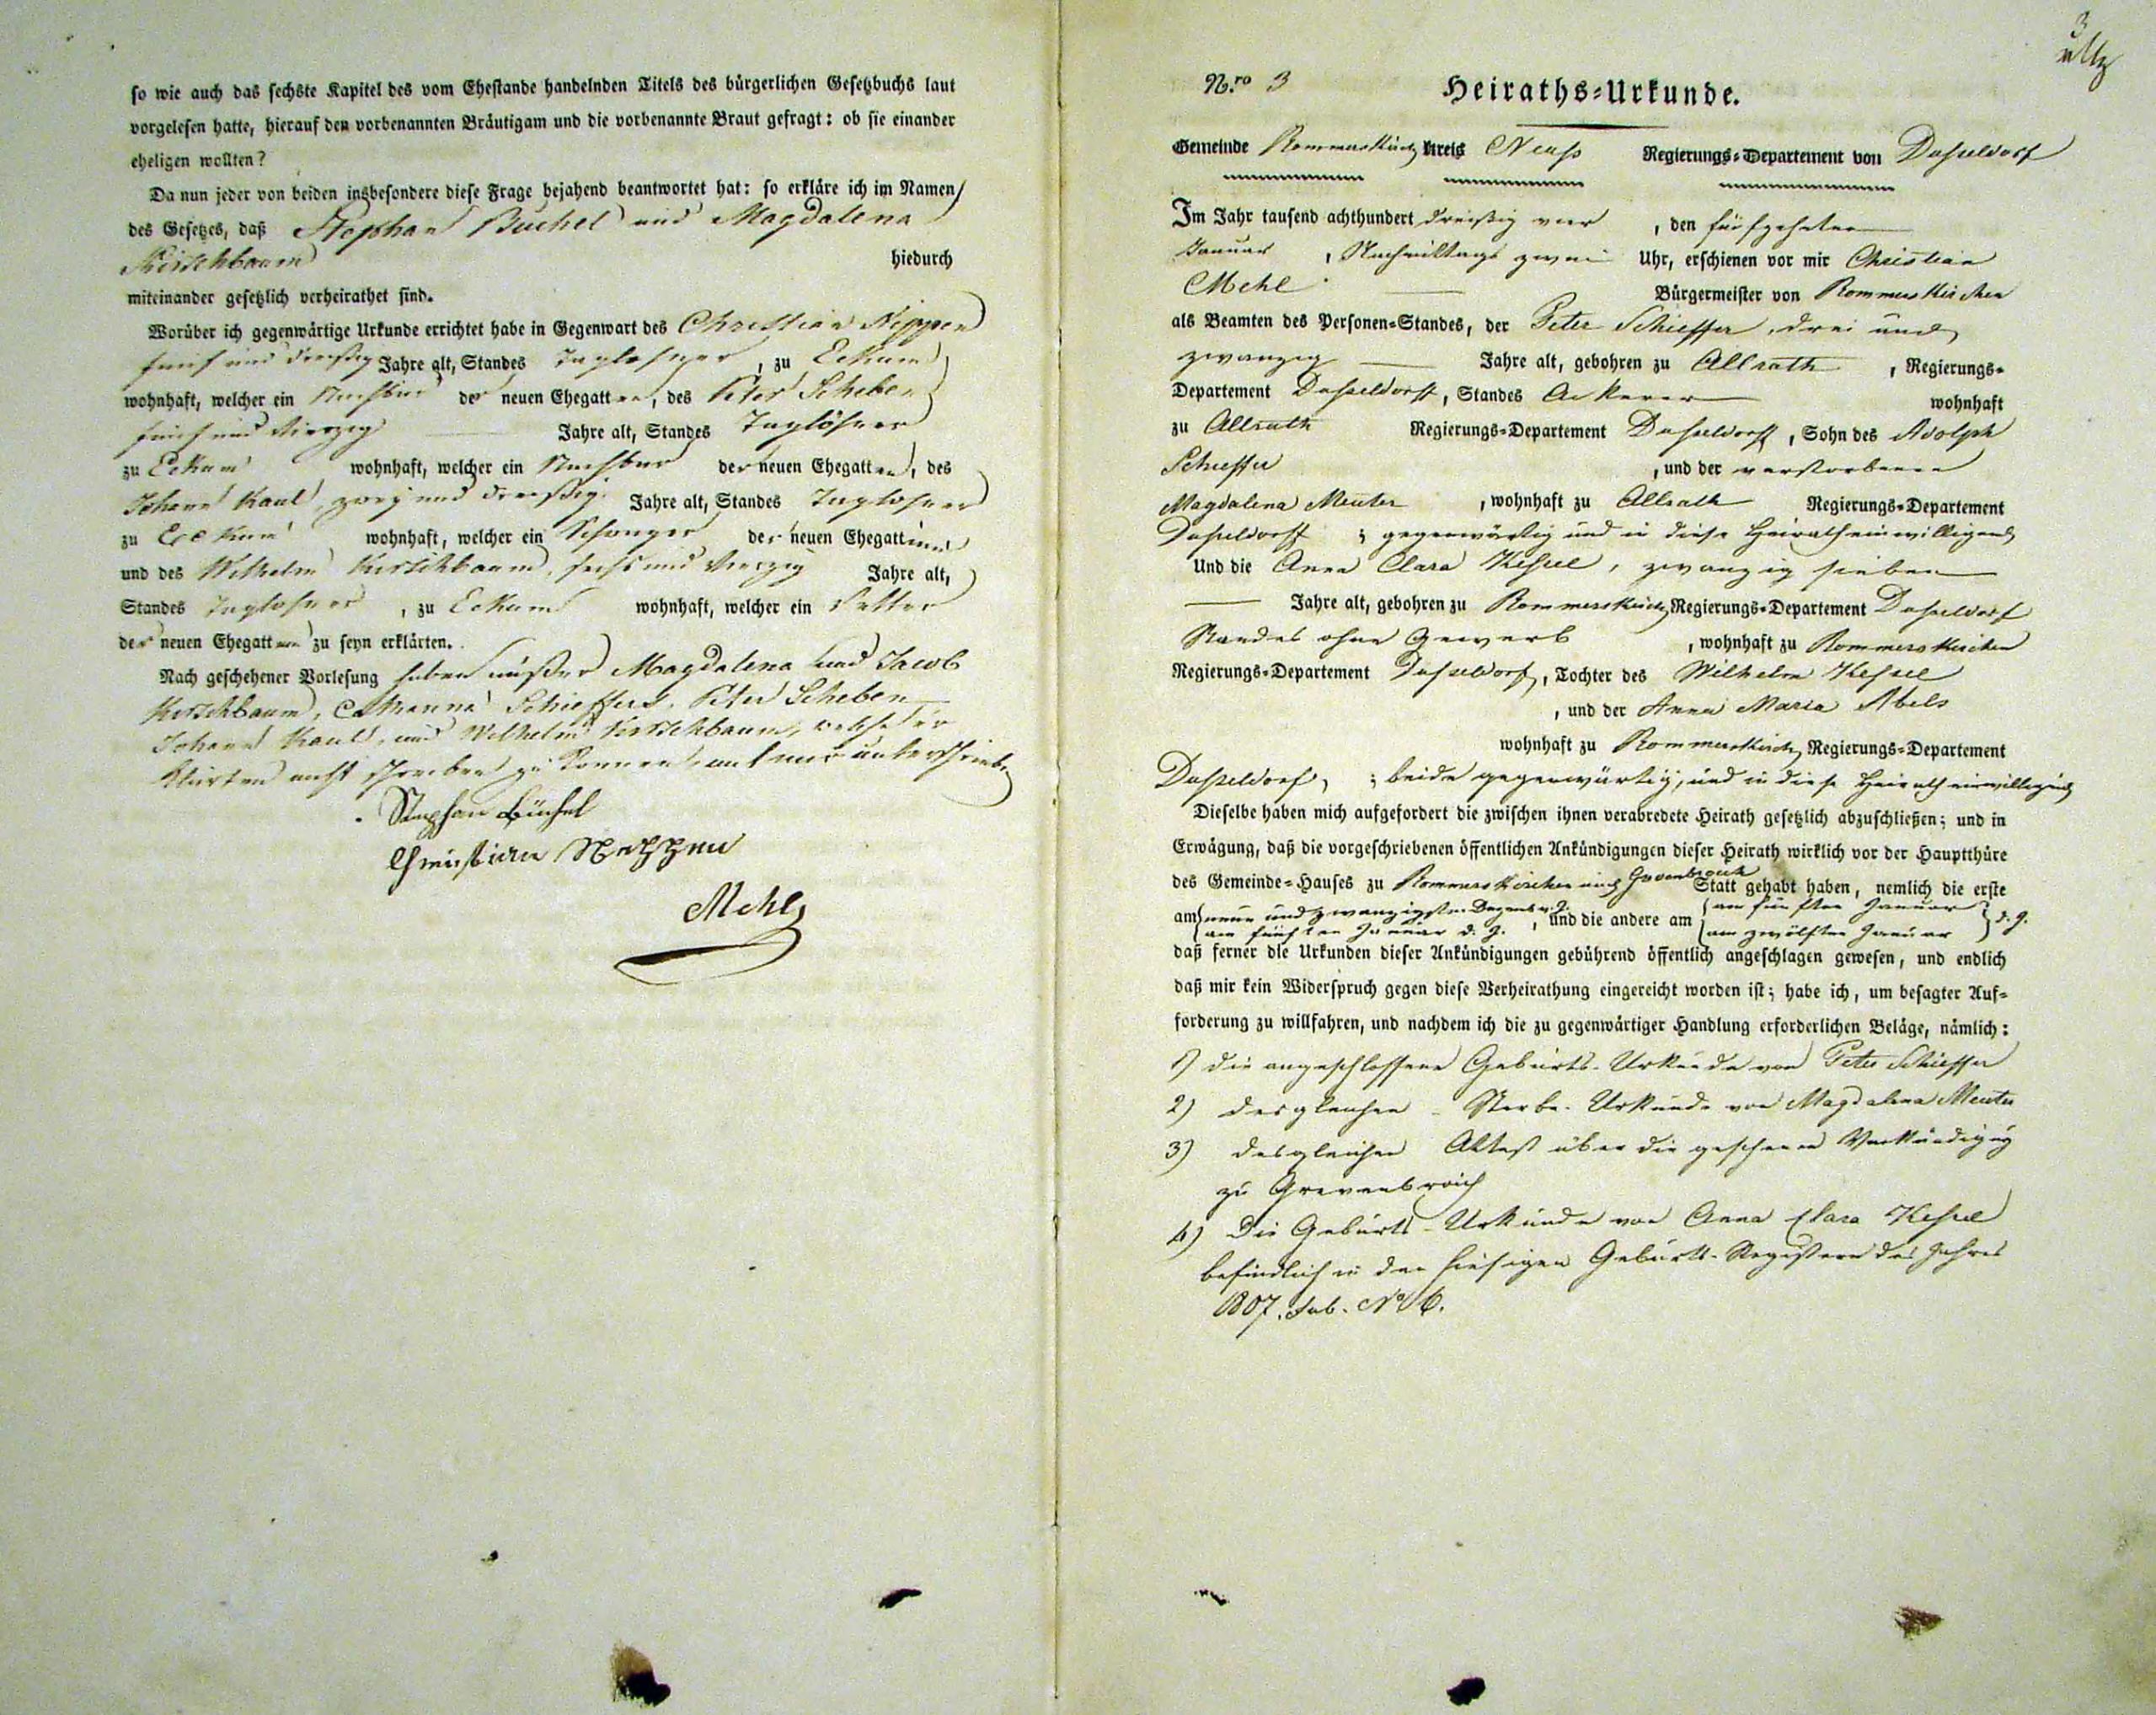 so wie auch das sechste Kapitel des vom Ehestande handelnden Titels des bürgerlichen Gesetzbuchs laut
vorgelesen hatte, hierauf den vorbenannten Bräutigam und die vorbenannte Braut gefragt: ob sie einander
eheligen wollten?
Da nun jeder von beiden insbesondere diese Frage bejahend beantwortet hat: so erkläre ich im Namen
des Gesetzes, daß Stephan Büchel und Magdalena
Kirschbaum hiedurch
miteinander gesetzlich verheirathet sind.
Worüber ich gegenwärtige Urkunde errichtet habe in Gegenwart des Christian Neppen
fünf und dreißig Jahre alt, Standes Taglöhner, zu Eckum
wohnhaft, welcher ein Nachbar der neuen Ehegatten, des Peter Scheben
fünf und vierzig Jahre alt, Standes Taglöhner
zu Eckum wohnhaft, welcher ein Nachbar der neuen Ehegatten, des
Johann Kaul, zwey und dreißig Jahre alt, Standes Taglöhner
zu Eckum wohnhaft, welcher ein Schwager der neuen Ehegattinn
und des Wilhelm Kirschbaum, sechs und vierzig Jahre alt,
Standes Taglöhner, zu Eckum wohnhaft, welcher ein Vetter
der neuen Ehegatten zu seyn erklärten.
Nach geschehener Vorlesung haben außer Magdalena und Jacob
Kirschbaum, Catharina Schieffers, Peter Scheben
Johann Kaul, und Wilhelm Kirschbaum, welche er
klärten nicht schreiben zu können, mit mir unterschrieben
Stephan Büchel
Christian Neppen
Mehl
3
N.ro 3 Heiraths-Urkunde.
Gemeinde Rommerskirch Kreis Neuss Regierungs-Departement von Dusseldorf
Im Jahr tausend achthundert dreißig vier, den fünfzehnten
Januar, Nachmittags zwei Uhr, erschienen vor mir Christian
Mehl Bürgermeister von Rommerskirchen
als Beamten des Personen-Standes, der Peter Schieffer, drei und
zwanzig Jahre alt, gebohren zu Allrath, Regierungs-
Departement Dusseldorff, Standes Ackerer wohnhaft
zu Allrath Regierungs-Departement Dusseldorff, Sohn des Adolph
Schieffer, und der verstorbenen
Magdalena Meuter, wohnhaft zu Allrath Regierungs-Departement
Dusseldorff; gegenwärtig und in diese Heirath einwilligend
Und die Anna Clara Kessel, zwanzig sieben
Jahre alt, gebohren zu Rommerskirch, Regierungs-Departement Dusseldorf
Standes ohne Gewerb, wohnhaft zu Rommerskirchen
Regierungs-Departement Dusseldorf, Tochter des Wilhelm Kessel
, und der Anna Maria Abels
wohnhaft zu Rommerskirch, Regierungs-Departement
Dusseldorf, ; beide gegenwärtig, und in diese Heirath einwilligend
Dieselbe haben mich aufgefordert die zwischen ihnen verabredete Heirath gesetzlich abzuschließen; und in
Erwägung, daß die vorgeschriebenen öffentlichen Ankündigungen dieser Heirath wirklich vor der Hauptthüre
des Gemeinde-Hauses zu Rommerskirchen und Grevenbroich Statt gehabt haben, nemlich die erste
am neun und zwanzigsten Dezember v. J. am fünften Januar d. J., und die andere am am fünften Januar am zwölften Januar d. J.
daß ferner die Urkunden dieser Ankündigungen gebührend öffentlich angeschlagen gewesen, und endlich
daß mir kein Widerspruch gegen diese Verheirathung eingereicht worden ist; habe ich, um besagter Auf-
forderung zu willfahren, und nachdem ich die zu gegenwärtiger Handlung erforderlichen Beläge, nämlich:
1) die angeschlossene Geburts-Urkunde von Peter Schieffer
2) desgleichen Sterbe-Urkunde von Magdalena Meuter
3) desgleichen Attest über die geschehene Verkündigung
zu Grevenbroich
4) Die Geburts-Urkunde von Anna Clara Kessel
befindlich in den hiesigen Geburts-Registern des Jahres
1807. sub. No 6.